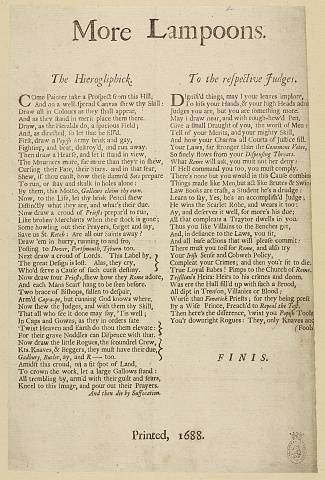 More Lampoons.
The Hierogliphick.
COme Painter take a Prospect from this Hill,
And on a well spread Canvas shew thy Skill:
Draw all in Colours as they shall appear,
And as they stand in merit place them there.
Draw, as the Heralds do, a spacious Field;
And, as directed, so let that be fill'd.
First, draw a Popish Army brisk and gay,
Fighting, and beat, destroy'd, and run away.
Then draw a Hearse, and let it stand in view,
The Mourners more, far more than theyr in shew,
Cursing their Fate, their Stars, and in that fear,
Shew, if thou canst, how they damn'd
To run, or stay and skulk in holes alone:
By them, this Motto, Gallows claim thy own.
Now, to the Life, let thy brisk Pencil shew
Distinctly what they are, and what's their due.
Now draw a croud of Priests prepar'd to run,
Like broken Merchants when their stock is gone;
Some howling out their Prayers, forget and say,
Save us St. Are all our saints away?
Draw 'em in hurry, running to and fro,
Posting to Dover, Portsmouth,
Next draw a croud of Lords. This Label by,
The great Design is lost. Alas, they cry,
Who'd serve a Cause of such curst destiny.
Now draw your Priests, shew how they Rome adore,
And each Mass Scarf hang to be seen before.
Two brace of Bishops, fallen to despair,
Arm'd Cap-a-pe, but running God knows where,
Now shew the Judges, and with them thy Skill,
That all who see it done may say, 'Tis well;
In Caps and Gowns, as they in orders sate
'Twixt Heaven and Earth do thou them elevate:
For their grave Noddles can Dispense with that.
Now draw the little Rogues, the scoundrel Crew,
Kts. Knaves, & Beggers, they must have their due,
Gadbury, Butler, by, and R—— ton.
Amidst this croud, on a fit spot of Land,
To crown the work, let a large Gallows stand:
All trembling by, arm'd with their guilt and fears,
Kneel to this image, and pour out their Prayers.
And then die by Suffocation.
To the respective Judges.
Dignifi'd things, may I your leaves implore,
To kiss your Hands, & your high Heads adore
Judges you are, but you are something more.
May I draw near, and with rough-hew'd Pen,
Give a small Draught of you, the worst of Men
Tell of your Merits, and your mighty Skill,
And how your Charms all Courts of Justice fill.
Your Laws, far stronger than the Commons Votes,
So finely flows from your Dispensing Throats.
What Rome will ask, you must not her deny:
If Hell command you too, you must comply.
There's none but you would in this Cause combine
Things made like Men, but act like Brutes & Swine
Law books are trash, a Student he's a drudge:
Learn to say, Yes, he's an accomplish'd Judge;
He wins the Scarlet Robe, and wears it too:
Ay, and deserves it well, for more's his due;
All that compleats a Traytor dwells in you.
Thus you like Villains to the Benches get,
And, in defiance to the Laws, you sit,
And all base actions that will please commit:
There must you toil for Rome, and also try
Your Irish Sense and Cobweb Policy,
Compleat your Crimes; and then you'r fit to die.
True Loyal Babes! Pimps to the Church of Rome
Tressilian's Heirs: Heirs to his crimes and doom,
Was ere the Hall fill'd up with such a Brood,
All dipt in Treason, Villanies or Blood:
Worse than Fanatick Priests; for they being prest
By a Wise Prince, Preach'd to Repeal the Test.
Then here's the difference, 'twixt you Popish Tools
You'r downright Rogues: They, only Knaves and
(Fools
FINIS.
Printed, 1688.